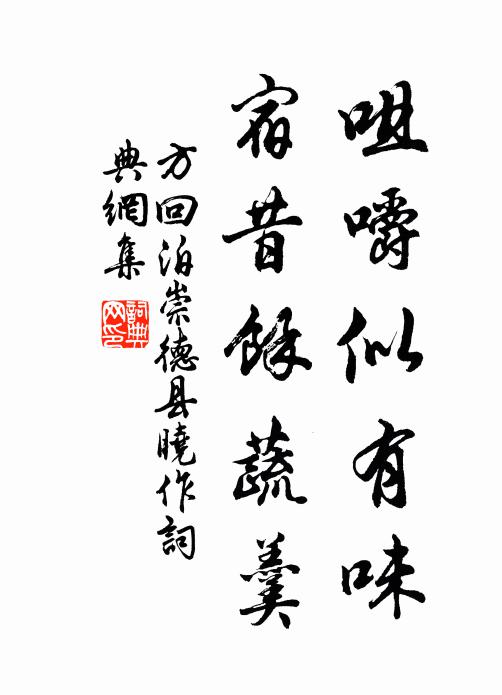 咀嚼似有味
宿昔餘蔬羹
方回泊崇德县曉作詞
典網集
詞典网印